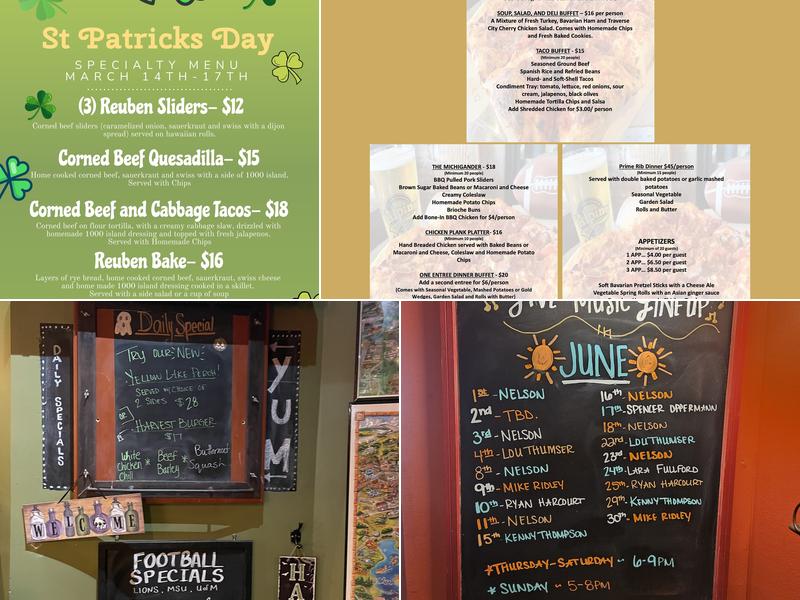 St Patricks Day
SPECIALTY MENU
MARCH 14TH-17TH
(3) Reuben Sliders- $12
Corned beef sliders (caramelized onion, sauerkraut and swiss with a dijon
spread) served on hawaiian rolls.
Corned Beef Quesadilla- $15
Home cooked corned beef, sauerkraut and swiss with a side of 1000 island.
Served with Chips
Corned Beef and Cabbage Tacos- $18
Corned beef on flour tortilla, with a creamy cabbage slaw, drizzled with
homemade 1000 island dressing and topped with fresh jalapenos.
Served with Homemade Chips
Reuben Bake- $16
Layers of rye bread, home cooked corned beef, sauerkraut, swiss cheese
and home made 1000 island dressing cooked in a skillet.
Served with a side salad or a cup of soup
SOUP, SALAD, AND DELI BUFFET – $16 per person
A Mixture of Fresh Turkey, Bavarian Ham and Traverse
City Cherry Chicken Salad. Comes with Homemade Chips
and Fresh Baked Cookies.
TACO BUFFET - $15
(Minimum 20 people)
Seasoned Ground Beef
Spanish Rice and Refried Beans
Hard- and Soft-Shell Tacos
Condiment Tray: tomato, lettuce, red onions, sour
cream, jalapenos, black olives
Homemade Tortilla Chips and Salsa
Add Shredded Chicken for $3.00/ person
THE MICHIGANDER - $18
(Minimum 20 people)
BBQ Pulled Pork Sliders
Brown Sugar Baked Beans or Macaroni and Cheese
Creamy Coleslaw
Homemade Potato Chips
Brioche Buns
Add Bone-In BBQ Chicken for $4/person
CHICKEN PLANK PLATTER- $16
(Minimum 10 people)
Hand Breaded Chicken served with Baked Beans or
Macaroni and Cheese, Coleslaw and Homemade Potato
Chips
ONE ENTREE DINNER BUFFET - $20
Add a second entree for $6/person
(Comes with Seasonal Vegetable, Mashed Potatoes or Gold
Wedges, Garden Salad and Rolls with Butter)
Prime Rib Dinner $45/person
(Minimum 15 people)
Served with double baked potatoes or garlic mashed
potatoes
Seasonal Vegetable
Garden Salad
Rolls and Butter
APPETIZERS
(Minimum of 20 guests)
1 APP... $4.00 per guest
2 APP... $6.50 per guest
3 APP... $8.50 per guest
Soft Bavarian Pretzel Sticks with a Cheese Ale
Vegetable Spring Rolls with an Asian ginger sauce
DAILY SPECIALS
Daily Special
TRY OUR NEW:
YELLOW LAKE PERCH!
SERVED W/ CHOICE OF
2 SIDES $28
OR
HARVEST BURGER
$17
White
Chicken
Chili
*
Beef
Barley
*
Butternut
Squash
YUM
WELCOME
FOOTBALL
SPECIALS
LIONS, MSU, UofM
HA
LIVE MUSIC LINEUP
JUNE
1st - NELSON
2nd - TBD.
3rd - NELSON
4th - LOU THUMSER
8th - NELSON
9th - MIKE RIDLEY
10th - RYAN HARCOURT
11th - NELSON
15th - KENNY THOMPSON
16th - NELSON
17th - SPENCER OPPERMANN
18th - NELSON
22nd - LOU THUMSER
23rd - NELSON
24th - LARA FULLFORD
25th - RYAN HARCOURT
29th - KENNY THOMPSON
30th - MIKE RIDLEY
*THURSDAY-SATURDAY ~ 6-9PM
* SUNDAY ~ 5-8PM